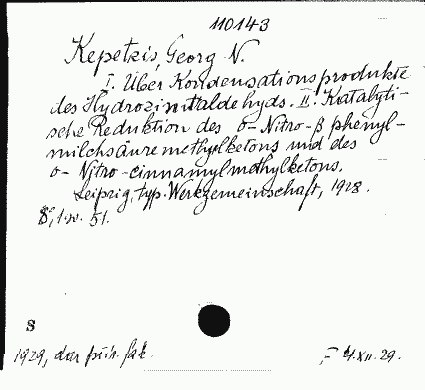 110143
Kepetzis, Georg N.
I. Über Kondensationsprodukte
des Hydrozimtaldehyds. II. Katalyti-
sche Reduktion des o-Nitro-β phenyl-
milchsäuremethylketons und des
o-Nitro-cinnamylmethylketons.
Leipzig, typ. Werkgemeinschaft, 1928.
8°, 1 v. 51.
S
1929, dar
4.XII.29.